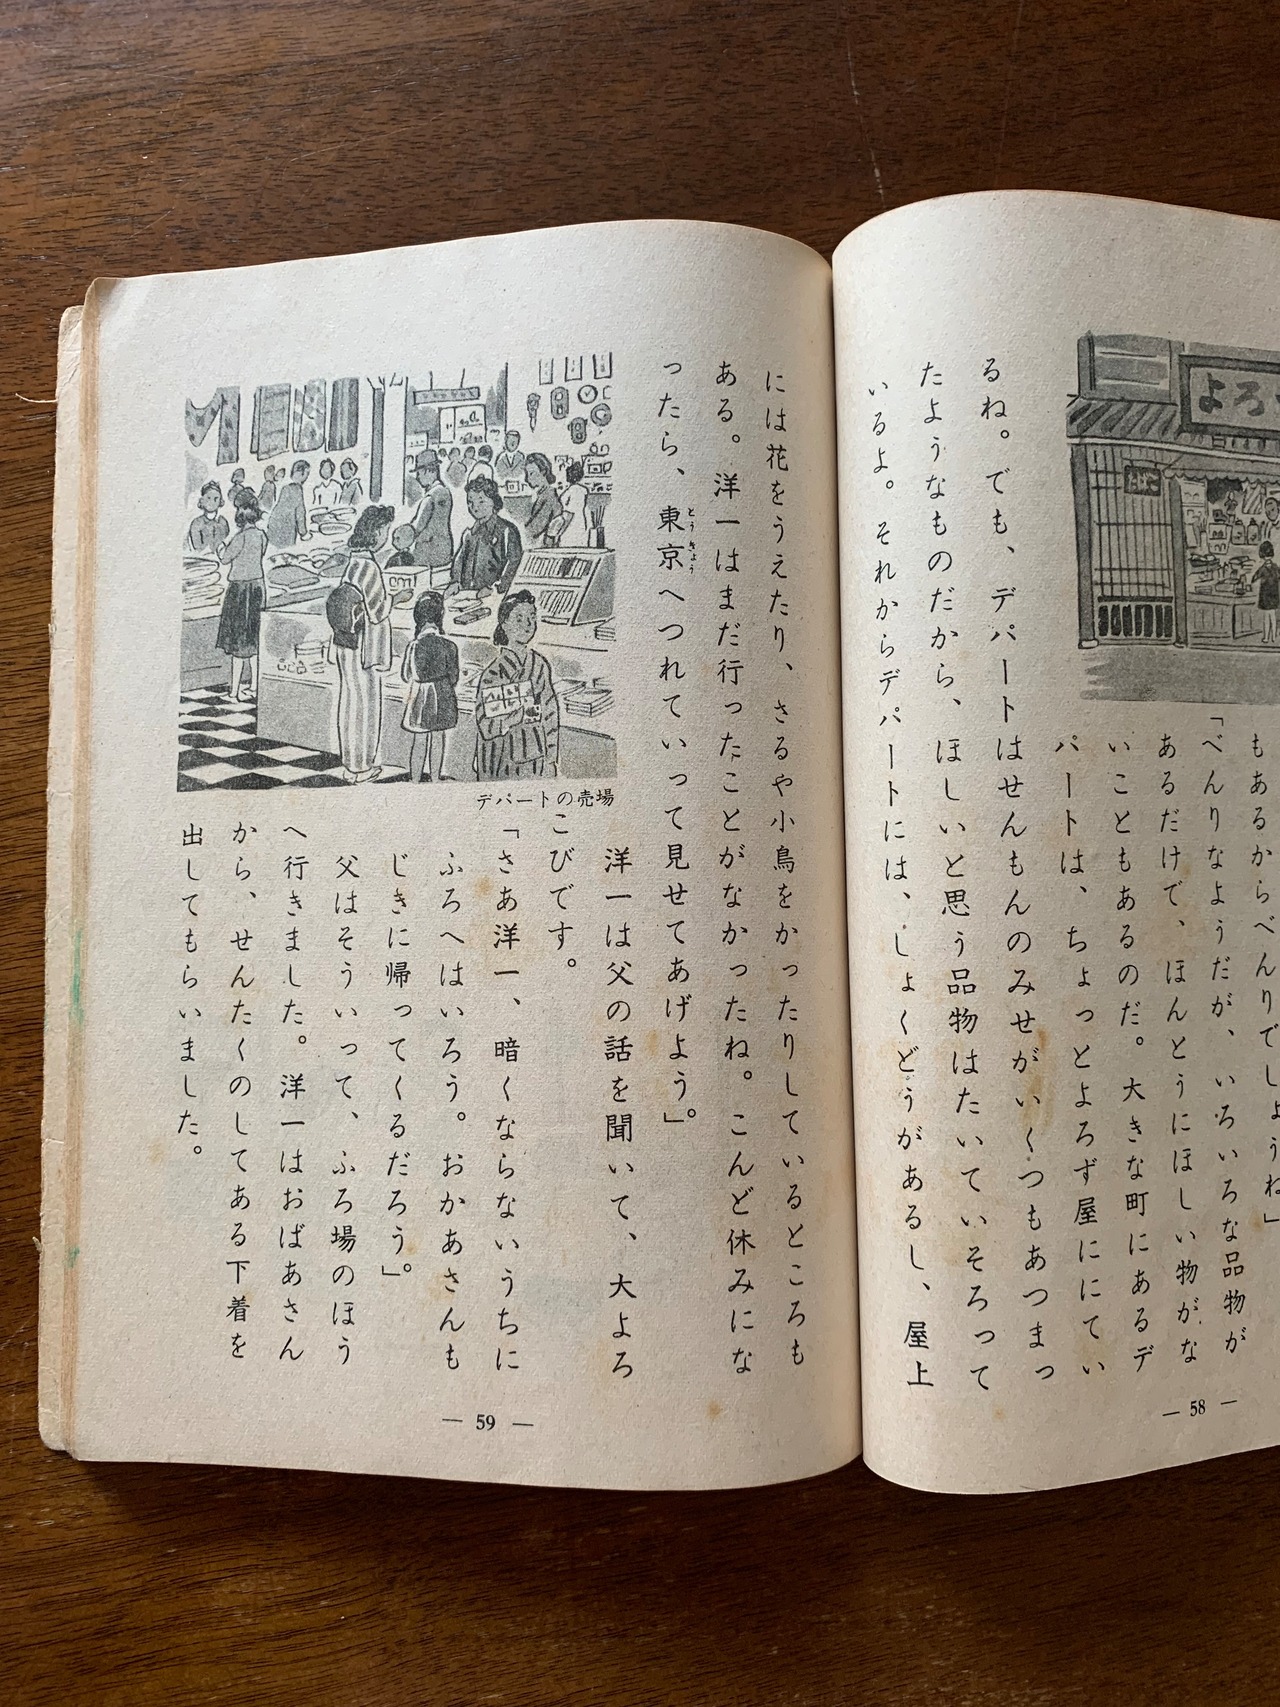 よろ
もあるからべんりでしょうね」
「べんりなようだが、いろいろな品物が
あるだけで、ほんとうにほしい物がな
いこともあるのだ。大きな町にあるデ
パートは、ちょっとよろず屋ににてい
るね。でも、デパートはせんもんのみせがいくつもあつまっ
たようなものだから、ほしいと思う品物はたいていそろって
いるよ。それからデパートには、しょくどうがあるし、屋上
— 58 —
には花をうえたり、さるや小鳥をかったりしているところも
ある。洋一はまだ行ったことがなかったね。こんど休みにな
ったら、東京へつれていって見せてあげよう」。
とうきょう
デパートの売場
洋一は父の話を聞いて、大よろ
こびです。
「さあ洋一、暗くならないうちに
ふろへはいろう。おかあさんも
じきに帰ってくるだろう」。
父はそういって、ふろ場のほう
へ行きました。洋一はおばあさん
から、せんたくのしてある下着を
出してもらいました。
— 59 —